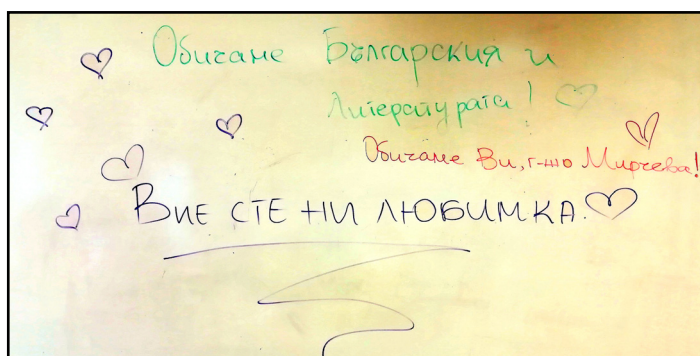 Обичаме Българския и
Литературата!
Обичаме Ви, г-жо Мирчева!
Вие сте ни любимка.